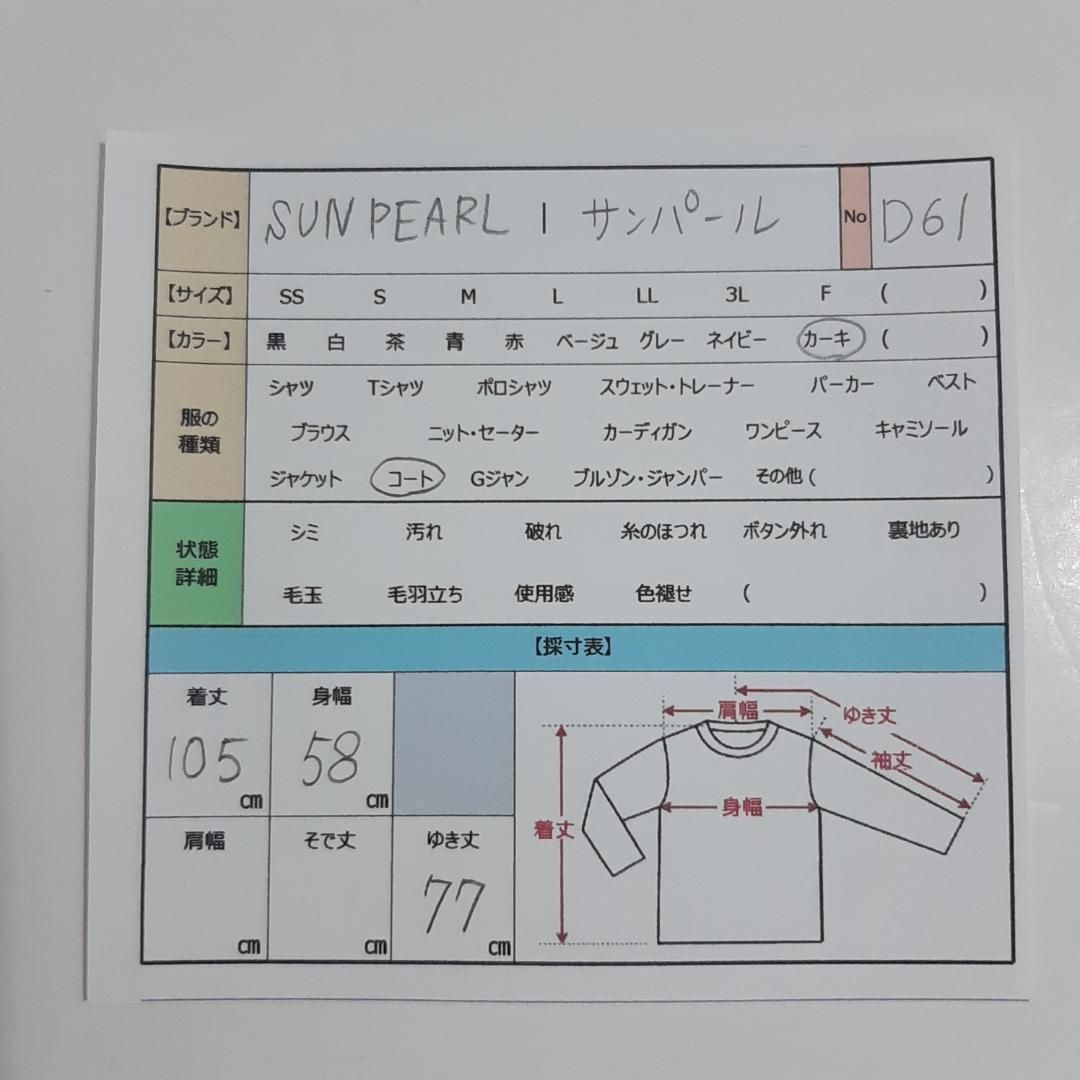 【ブランド】 SUN PEARL | サンパール No D61
【サイズ】 SS S M L LL 3L F ( )
【カラー】 黒 白 茶 青 赤 ベージュ グレー ネイビー カーキ ( )
服の種類
シャツ Tシャツ ポロシャツ スウェット・トレーナー パーカー ベスト
ブラウス ニット・セーター カーディガン ワンピース キャミソール
ジャケット コート Gジャン ブルゾン・ジャンパー その他( )
状態詳細
シミ 汚れ 破れ 糸のほつれ ボタン外れ 裏地あり
毛玉 毛羽立ち 使用感 色褪せ ( )
【採寸表】
着丈 身幅
105 cm 58 cm
肩幅 そで丈 ゆき丈
cm cm 77 cm
肩幅 ゆき丈
袖丈
身幅
着丈